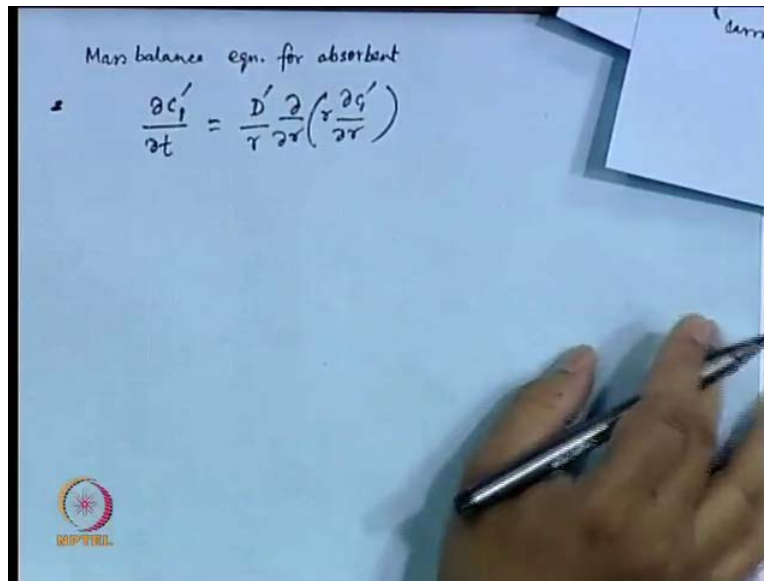 Mass balance eqn. for absorbent
∂c₁′/∂t = D′/r ∂/∂r (r ∂c₁′/∂r)
NPTEL